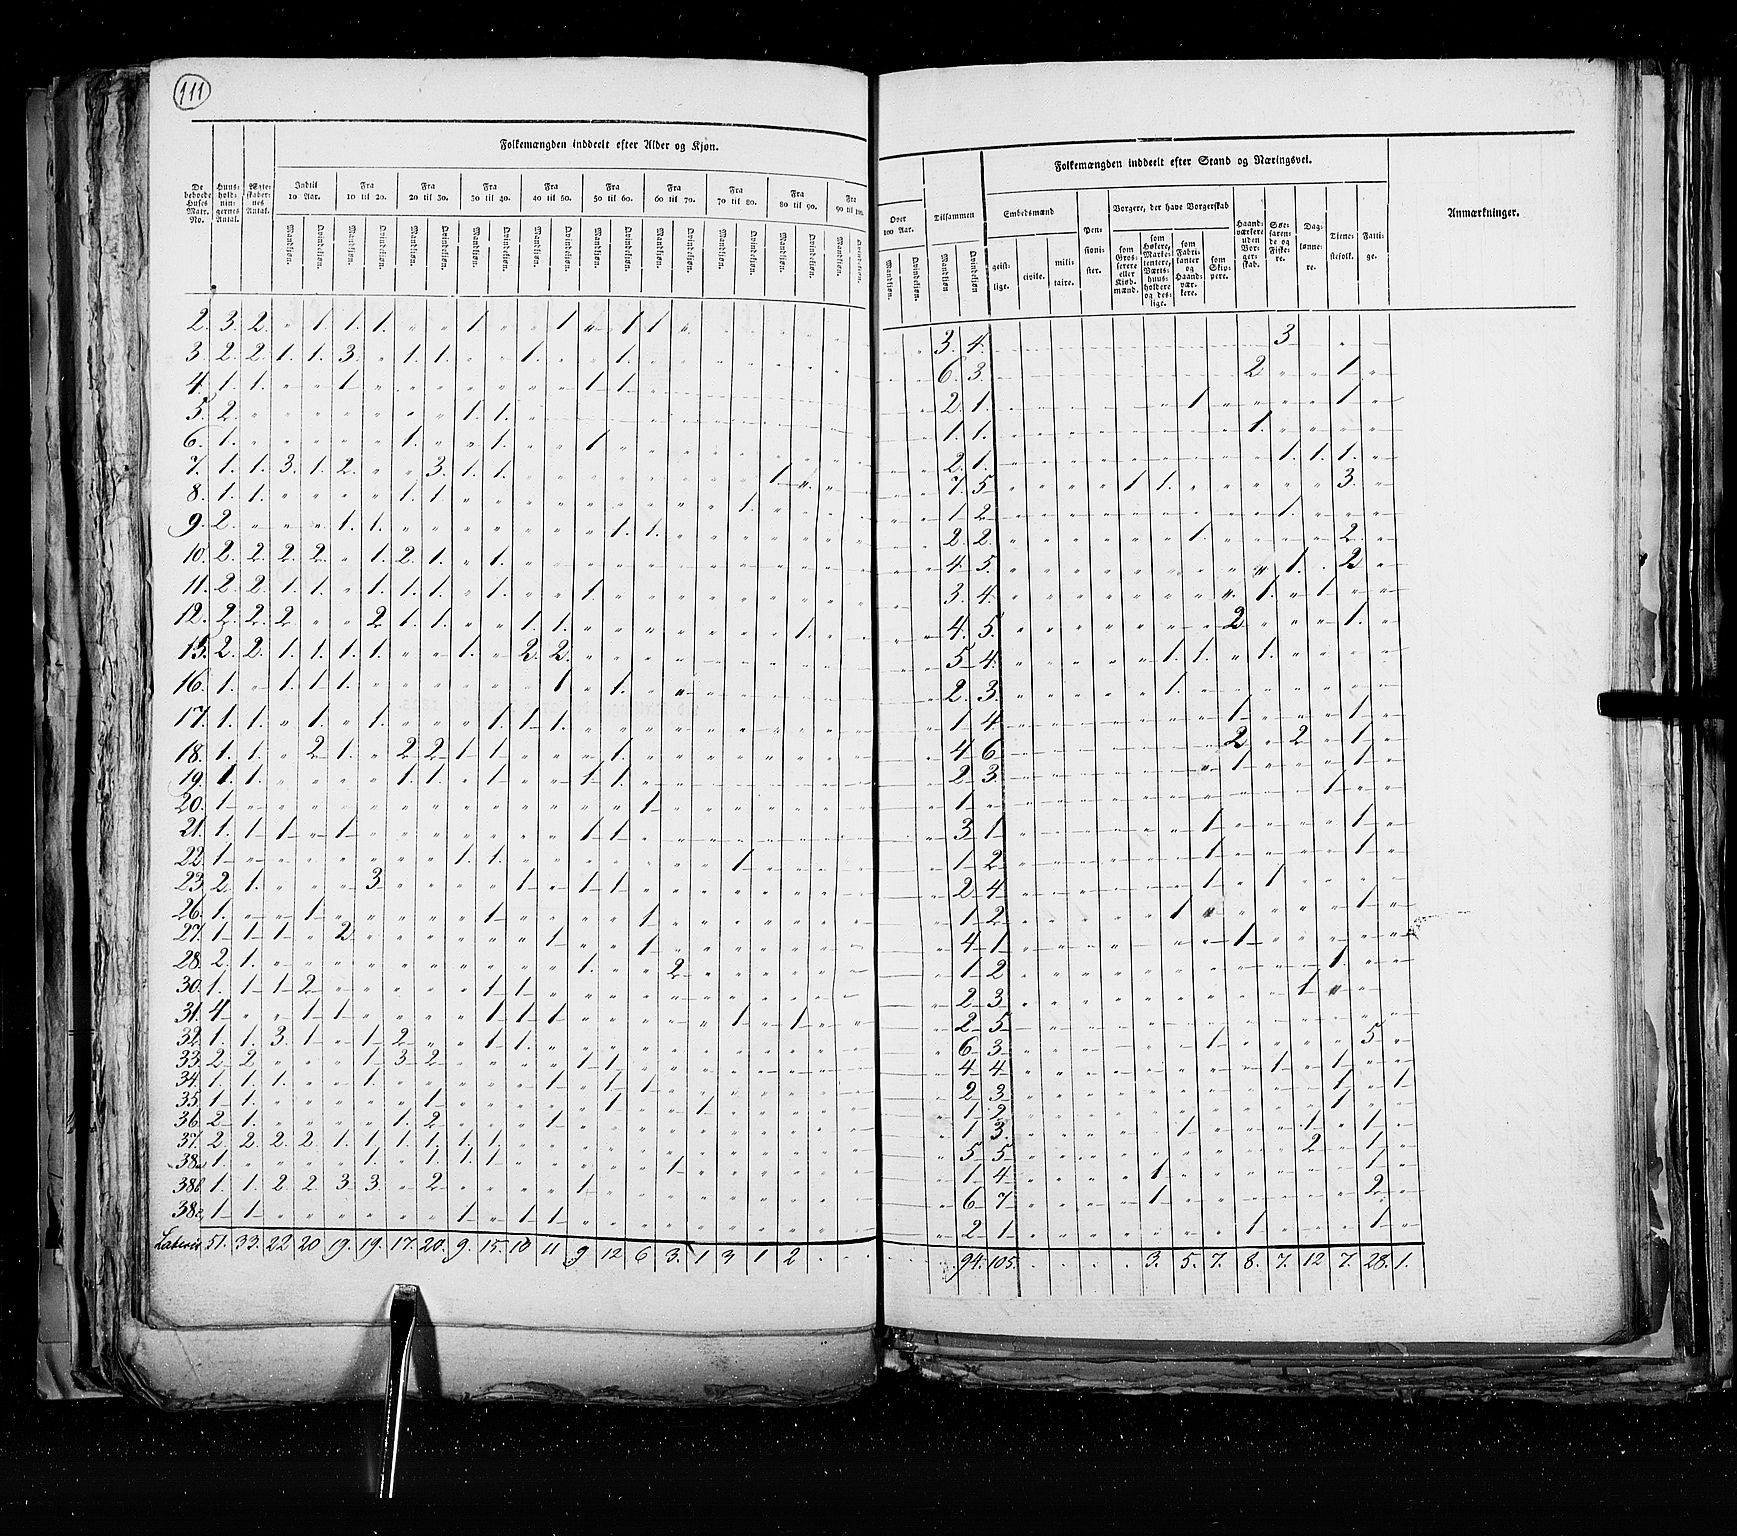 111
Folkemængden inddeelt efter Alder og Kjøn.
De beboede Huses Matr. No.
Huus-holdnin-gernes Antal.
Ægte-skaber-nes Antal.
Indtil 10 Aar.
Fra 10 til 20.
Fra 20 til 30.
Fra 30 til 40.
Fra 40 til 50.
Fra 50 til 60.
Fra 60 til 70.
Fra 70 til 80.
Fra 80 til 90.
Fra 90 til 100.
Mandkjøn. Qvindekjøn. Mandkjøn. Qvindekjøn. Mandkjøn. Qvindekjøn. Mandkjøn. Qvindekjøn. Mandkjøn. Qvindekjøn. Mandkjøn. Qvindekjøn. Mandkjøn. Qvindekjøn. Mandkjøn. Qvindekjøn. Mandkjøn. Qvindekjøn. Mandkjøn. Qvindekjøn.
2. 3. 2. " 1. 1. 1. " " 1. " " 1 " 1 1. "
3 2. 2. 1. 1. 3. " 1. 1. " " 1. " " 1.
4. 1. 1. " " 1 " " " " " " " 1 1.
5. 2. " " " " " " " 1. 1.
6. 1. " " " " " 1. " " 1. " " 1
7. 1. 1. 3. 1. 2. " " 3. 1. 1. " " " " " " " " 1. "
8. 1. 1. " " " " 1. 1. " " " " " " " " 1.
9. 2. " " " 1. 1. " " " " " " " 1. 1.
10. 2. 2. 2. 2. " 1. 2. 1. " 1.
11. 2. 2. 1. 1. " 1. 1. 1. " 1. " " 1.
12. 2. 2. 2. " " 2 1. 1. " " 1. 1. " " " " " " " 1.
15. 2. 2. 1. 1. 1. 1. " " 1. " 2. 2.
16. 1. " 1. 1. 1. " " " " " " 1 " 1.
17. 1. 1. " 1. " 1. " " " 1. 1. 1.
18. 1. 1. " 2 1. " 2 2 1 1 " " " 1.
19. 1. 1. " " " " 1. 1. " 1 " " 1 1.
20. 1 " " " " " " " " " " " " " 1
21. 1. 1 1 " 1 " " " " " " " 1 1.
22. 1 " " " " " " " 1. 1. " " " " " " 1
23. 2. 1. " " " 3 " " " " 1 " 1 1
26. 1. " " 1 " " " " " 1 " " " " 1
27. 1 1 1 " 2 " " " " " " 1 " " 1
28. 2. 1. " " " " " " " " " " 1. " " 2
30. 1. 1 1 2 " " " " " 1 1
31. 4 " " 1 1 " " " " 1 1 1 " " " " " 1 " 1
32. 1. 1. 3. 1 " 1 2 " " 1 1.
33. 2 2 " " " 1. 3 2 " " " " 1 1
34. 1. 1. 1. " " 1. " " " " " 1 " 1 1
35. 1 1. " " " " " 1 " " " " " 1 " " 1
36. 2 1. " " " " 1. 2 " " " 1
37. 2. 2. 2. 2. 1. 1. 1. 1. 1. 1.
38a 1. " " " " 1. " 1. 1. 1 " " " " " 1
38b 1. 1. 2. 2. 3. 3. " 2 " " " " 1
38c 1 1 " " " " " " 1 " 1 1
Lateris 51. 33. 22 20 19. 19. 17. 20. 9. 15. 10 11 9 12 6 3. 1 3 1 2
Folkemængden inddeelt efter Stand og Næringsvei.
Anmærkninger.
Over 100 Aar.
Tilsammen
Mandkjøn. Qvindekjøn. Mandkjøn Qvindekjøn
Embedsmænd
geist-lige. civile. mili-taire.
Pen-sioni-ster.
Borgere, der have Borgerskab
som Gros-serere eller Kjøb-mænd.
som Høkere, Marke-tentere, Værts-huus-holdere og des-lige.
som Fabri-kanter og Haand-vær-kere.
som Skip-pere.
Haand-værkere uden Bor-ger-skab.
Søe-faren-de og Fiske-re.
Dag-lønne-re.
Tiene-stefolk.
Fatti-ge.
3. 4. 3
6. 3. 2 " " 1
2. 1. 1 1
1. 1. 1.
2. 1. 1. 1. 1.
7. 5 1 1. 3.
1 2. 1.
2. 2. 1. 2.
4. 5. 1. 2
3. 4. 1. 1
4. 5. 2 1.
5 4. 1. 1. 1.
2. 3. 1.
1 4. 1 1
4 6 2 2 1
2 3. 1
1 1
3. 1 1 1
1 2. 1 1
2 4 1 1
1 2 1 1
4 1 1
1 2 1.
2 3 1
2 5
6 3 1 5
4 4 1 1
2 3 1 1
1 2 1
1 3. 1 1 1
5 5 2 1
1 4 1 1
6 7 1 2
2 1 1 1
94. 105. 3. 5. 7. 8. 7. 12 7. 28. 1.